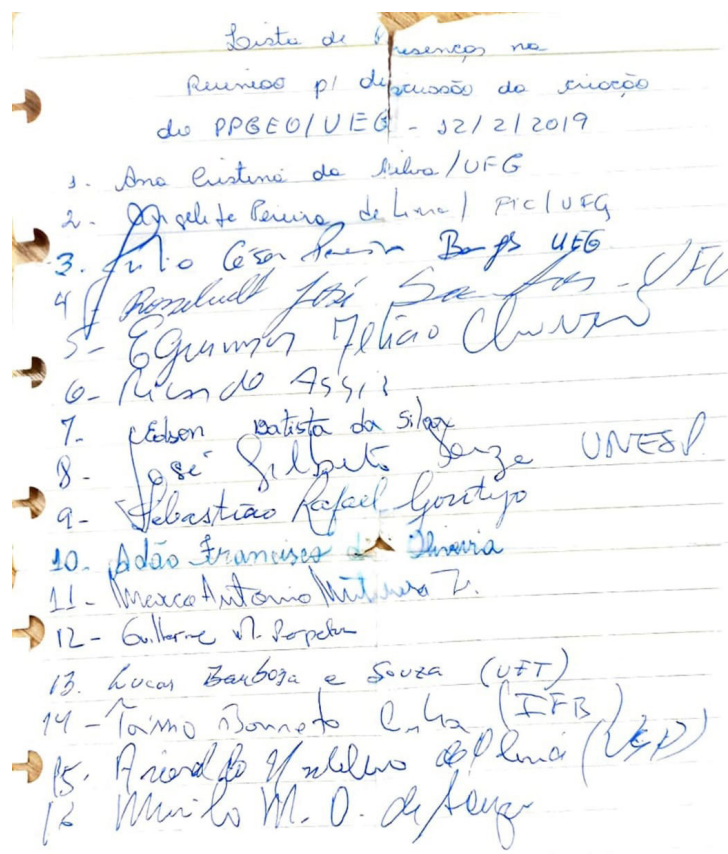 Lista de Presenças na
Reunião p/ discussão da criação
do PPGEO/UEG - 12/2/2019
1. Ana Cristina da Silva/UFG
2. Angelita Pereira de Lima/ FIC/UFG
3. Júlio César Pereira Borges UEG
4 - Rosselvelt José Santos - UFU
5 - Eguimar Felício Chaveiro
6 - Ricardo Assis
7. Edson Batista da Silva
8 - José Gilberto Souza UNESP.
9 - Sebastião Rafael Gontijo
10. Adão Francisco de Oliveira
11 - Marco Antonio
12 - Guilherme
13. Lucas Barbosa e Souza (UFT)
14 - Bonneto (IFB)
15. (USP)
16 Murilo M. O. de Souza